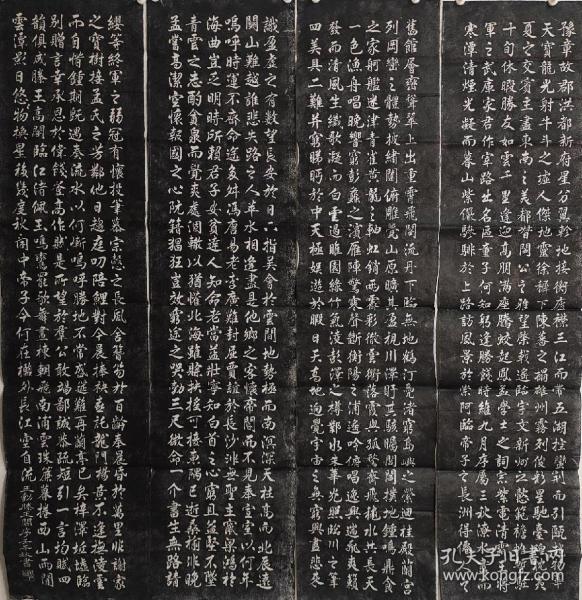 豫章故郡洪都新府星分翼軫地接衡廬襟三江而帶五湖控蠻荊而引甌越物華
天寶龍光射牛斗之墟人傑地靈徐孺下陳蕃之榻雄州霧列俊彩星馳臺隍枕夷
夏之交賓主盡東南之美都督閻公之雅望棨戟遙臨宇文新州之懿範襜帷暫駐
十旬休暇勝友如雲千里逢迎高朋滿座騰蛟起鳳孟學士之詞宗紫電清霜王將
軍之武庫家君作宰路出名區童子何知躬逢勝餞時維九月序屬三秋潦水盡而
寒潭清煙光凝而暮山紫儼驂騑於上路訪風景於崇阿臨帝子之長洲得仙人之
舊館層巒聳翠上出重霄飛閣流丹下臨無地鶴汀鳧渚窮島嶼之縈迴桂殿蘭宮
列岡巒之體勢披繡闥俯雕甍山原曠其盈視川澤盱其駭矚閭閻撲地鐘鳴鼎食
之家舸艦迷津青雀黃龍之軸虹銷雨霽彩徹雲衢落霞與孤鶩齊飛秋水共長天
一色漁舟唱晚響窮彭蠡之濱雁陣驚寒聲斷衡陽之浦遙吟俯暢逸興遄飛爽籟
發而清風生纖歌凝而白雲遏睢園綠竹氣凌彭澤之樽鄴水朱華光照臨川之筆
四美具二難并窮睇眄於中天極娛遊於暇日天高地迥覺宇宙之無窮興盡悲來
識盈虛之有數望長安於日下指吳會於雲間地勢極而南溟深天柱高而北辰遠
關山難越誰悲失路之人萍水相逢盡是他鄉之客懷帝閽而不見奉宣室以何年
嗚呼時運不齊命途多舛馮唐易老李廣難封屈賈誼於長沙非無聖主竄梁鴻於
海曲豈乏明時所賴君子安貧達人知命老當益壯寧知白首之心窮且益堅不墜
青雲之志酌貪泉而覺爽處涸轍以猶懽北海雖賒扶搖可接東隅已逝桑榆非晚
孟嘗高潔空懷報國之心阮籍猖狂豈效窮途之哭勃三尺微命一介書生無路請
纓等終軍之弱冠有懷投筆慕宗愨之長風舍簪笏於百齡奉晨昏於萬里非謝家
之寶樹接孟氏之芳鄰他日趨庭叨陪鯉對今晨捧袂喜託龍門楊意不逢撫凌雲
而自惜鍾期既遇奏流水以何慚嗚呼勝地不常盛筵難再蘭亭已矣梓澤坵墟臨
別贈言幸承恩於偉餞登高作賦是所望於羣公敢竭鄙誠恭疏短引一言均賦四
韻俱成滕王高閣臨江渚佩玉鳴鸞罷歌舞畫棟朝飛南浦雲珠簾暮捲西山雨閒
雲潭影日悠悠物換星移幾度秋閣中帝子今何在檻外長江空自流
孔夫子旧书网